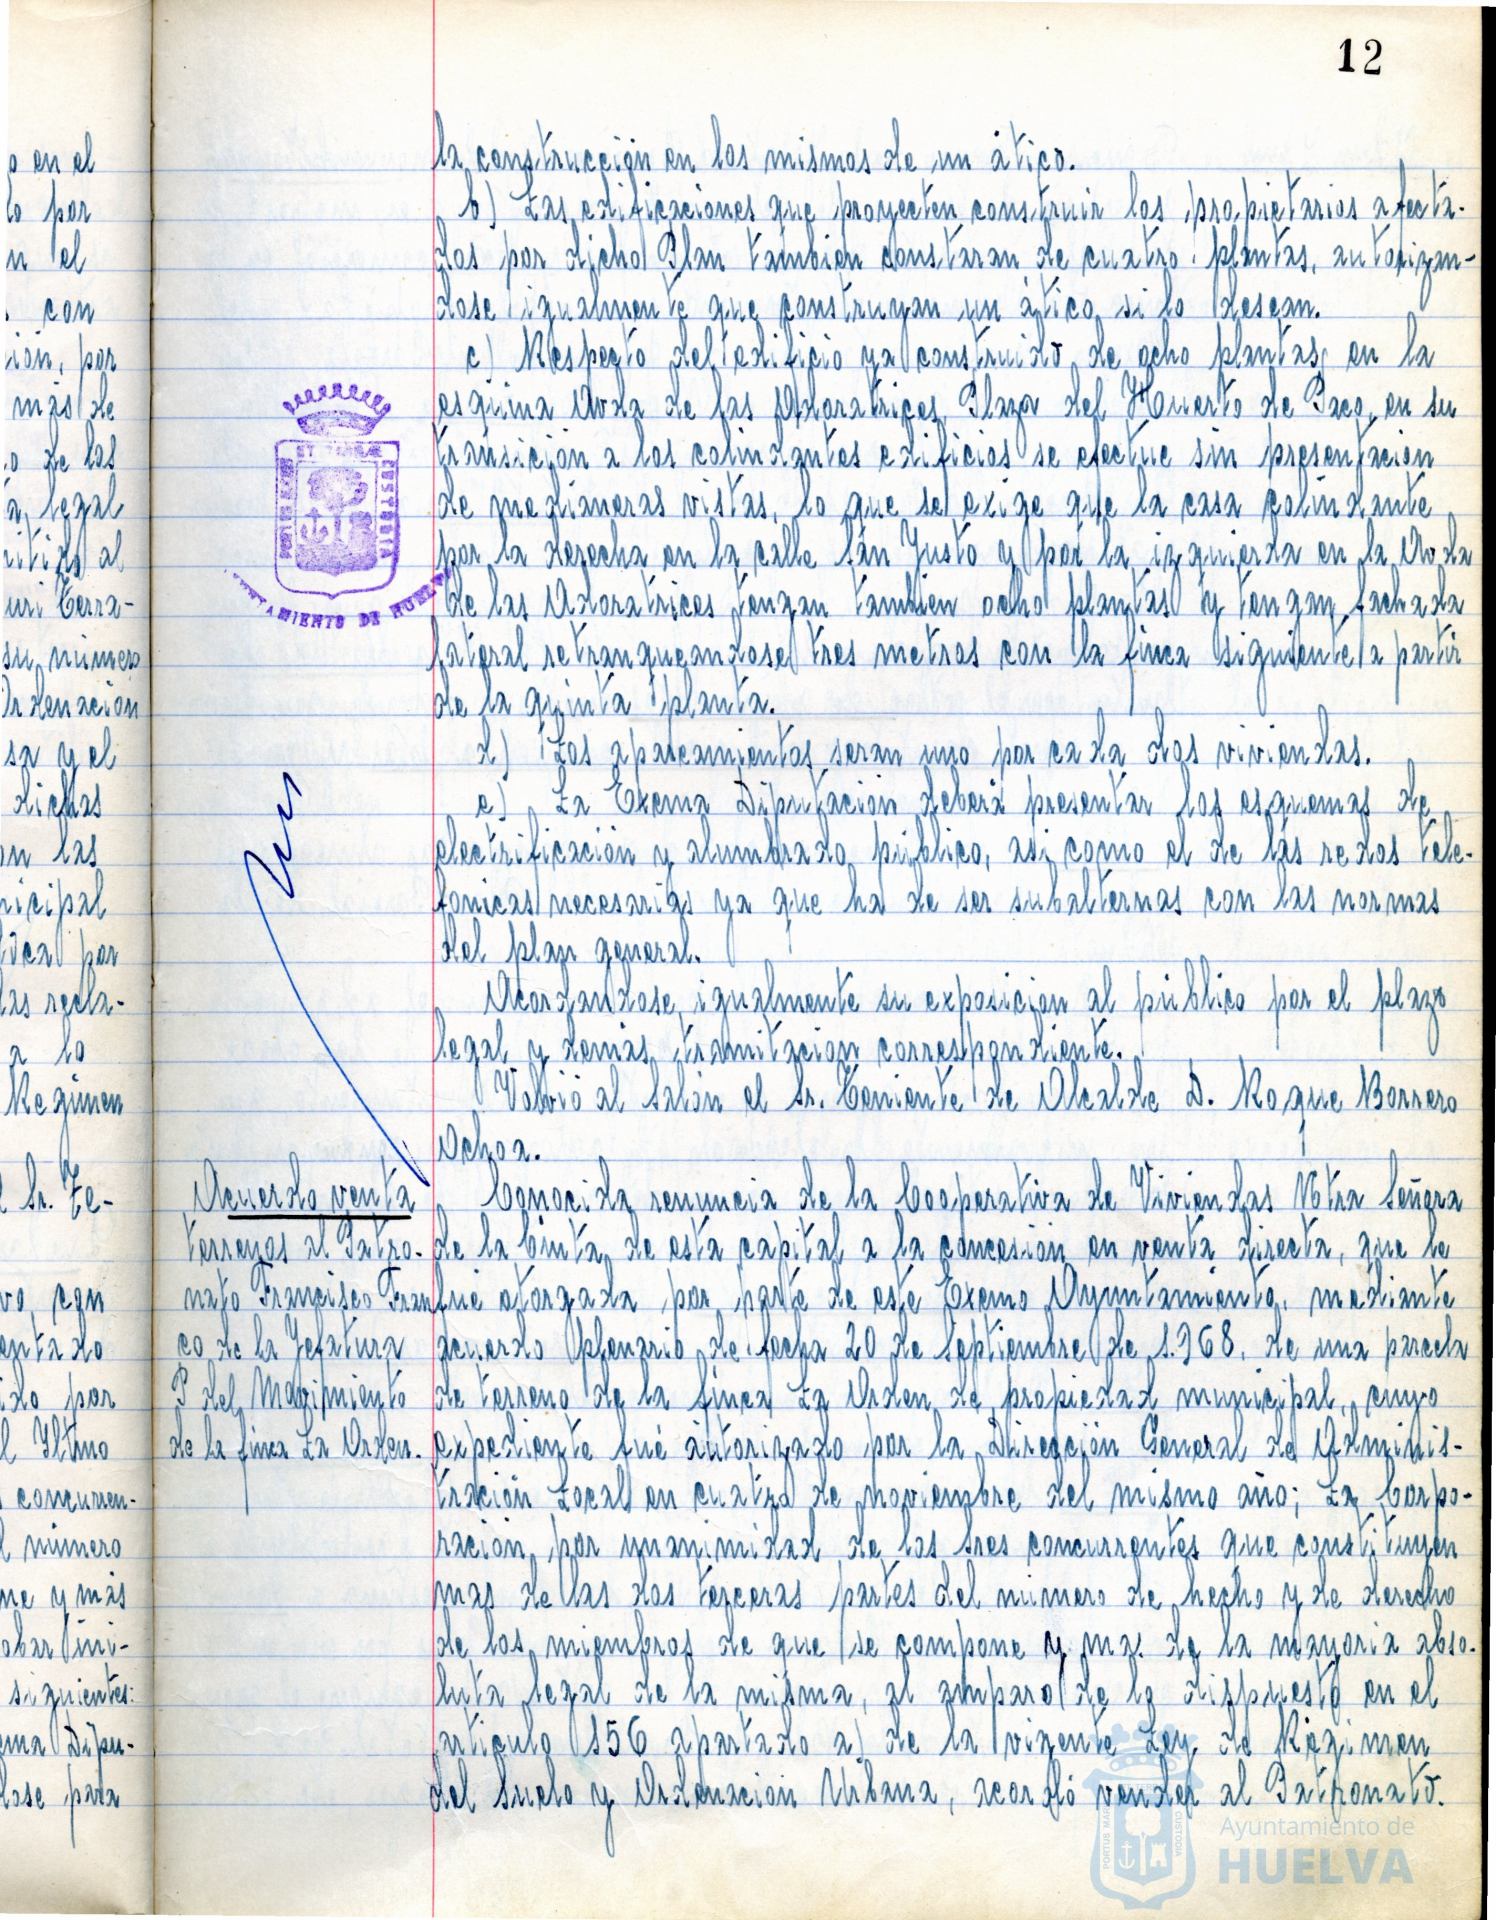 12
la construcción en los mismos de un ático.
b) Las edificaciones que proyecten construir los propietarios afecta-
dos por dicho Plan tambien constaran de cuatro plantas, autorizan-
dose igualmente que construyan un ático si lo desean.
c) Respecto del edificio ya construido de ocho plantas, en la
esquina Avda de las Adoratrices Plaza del Huerto de Paco, en su
transición a los colindantes edificios se efectue sin presentación
de medianeras vistas, lo que se exige que la casa colindante
por la derecha en la calle San Justo y por la izquierda en la Avda
de las Adoratrices tengan tambien ocho plantas y tengan fachada
lateral retranqueandose tres metros con la finca siguiente a partir
de la quinta planta.
d) Los aparcamientos seran uno por cada dos viviendas.
e) La Excma Diputación deberá presentar los esquemas de
electrificación y alumbrado público, asi como el de las redes tele-
fonicas necesarias ya que ha de ser subalternas con las normas
del plan general.
Acordandose igualmente su exposición al público por el plazo
legal y demás tramitación correspondiente.
Volvió al Salón el Sr. Teniente de Alcalde D. Roque Borrero
Ochoa.
Acuerdo venta
terrenos al Patro-
nato Francisco Fran
co de la Jefatura
P del Movimiento
de la finca La Orden.
Conocida renuncia de la Cooperativa de Viviendas Ntra Señora
de la Cinta, de esta capital a la concesión en venta directa, que le
fué otorgada por parte de este Excmo Ayuntamiento, mediante
acuerdo plenario de fecha 20 de Septiembre de 1.968, de una parcela
de terreno de la finca La Orden de propiedad municipal, cuyo
expediente fué autorizado por la Dirección General de Adminis-
tración Local en cuatro de noviembre del mismo año; La Corpo-
ración, por unanimidad de los Sres concurrentes que constituyen
mas de las dos terceras partes del número de hecho y de derecho
de los miembros de que se compone y mas de la mayoria abso-
luta legal de la misma, al amparo de lo dispuesto en el
articulo 156 apartado a) de la vigente Ley de Régimen
del Suelo y Ordenación Urbana, acordó vender al Patronato.
o en el
lo por
n el
con
ión, por
más de
o de los
legal
al
uri Terra-
su número
Ordenación
sa y el
dichas
on las
nicipal
por
las recla-
a lo
Regimen
l Sr. Te-
vo, con
entado
ido por
l Iltmo
concurren-
l número
ne y más
obar ini-
siguientes:
ema Dipu-
dose para
PORTUS MARIS
ET TERRAE
CUSTODIA
AYUNTAMIENTO DE HUELVA
PORTUS MARIS
CUSTODIA
Ayuntamiento de
HUELVA